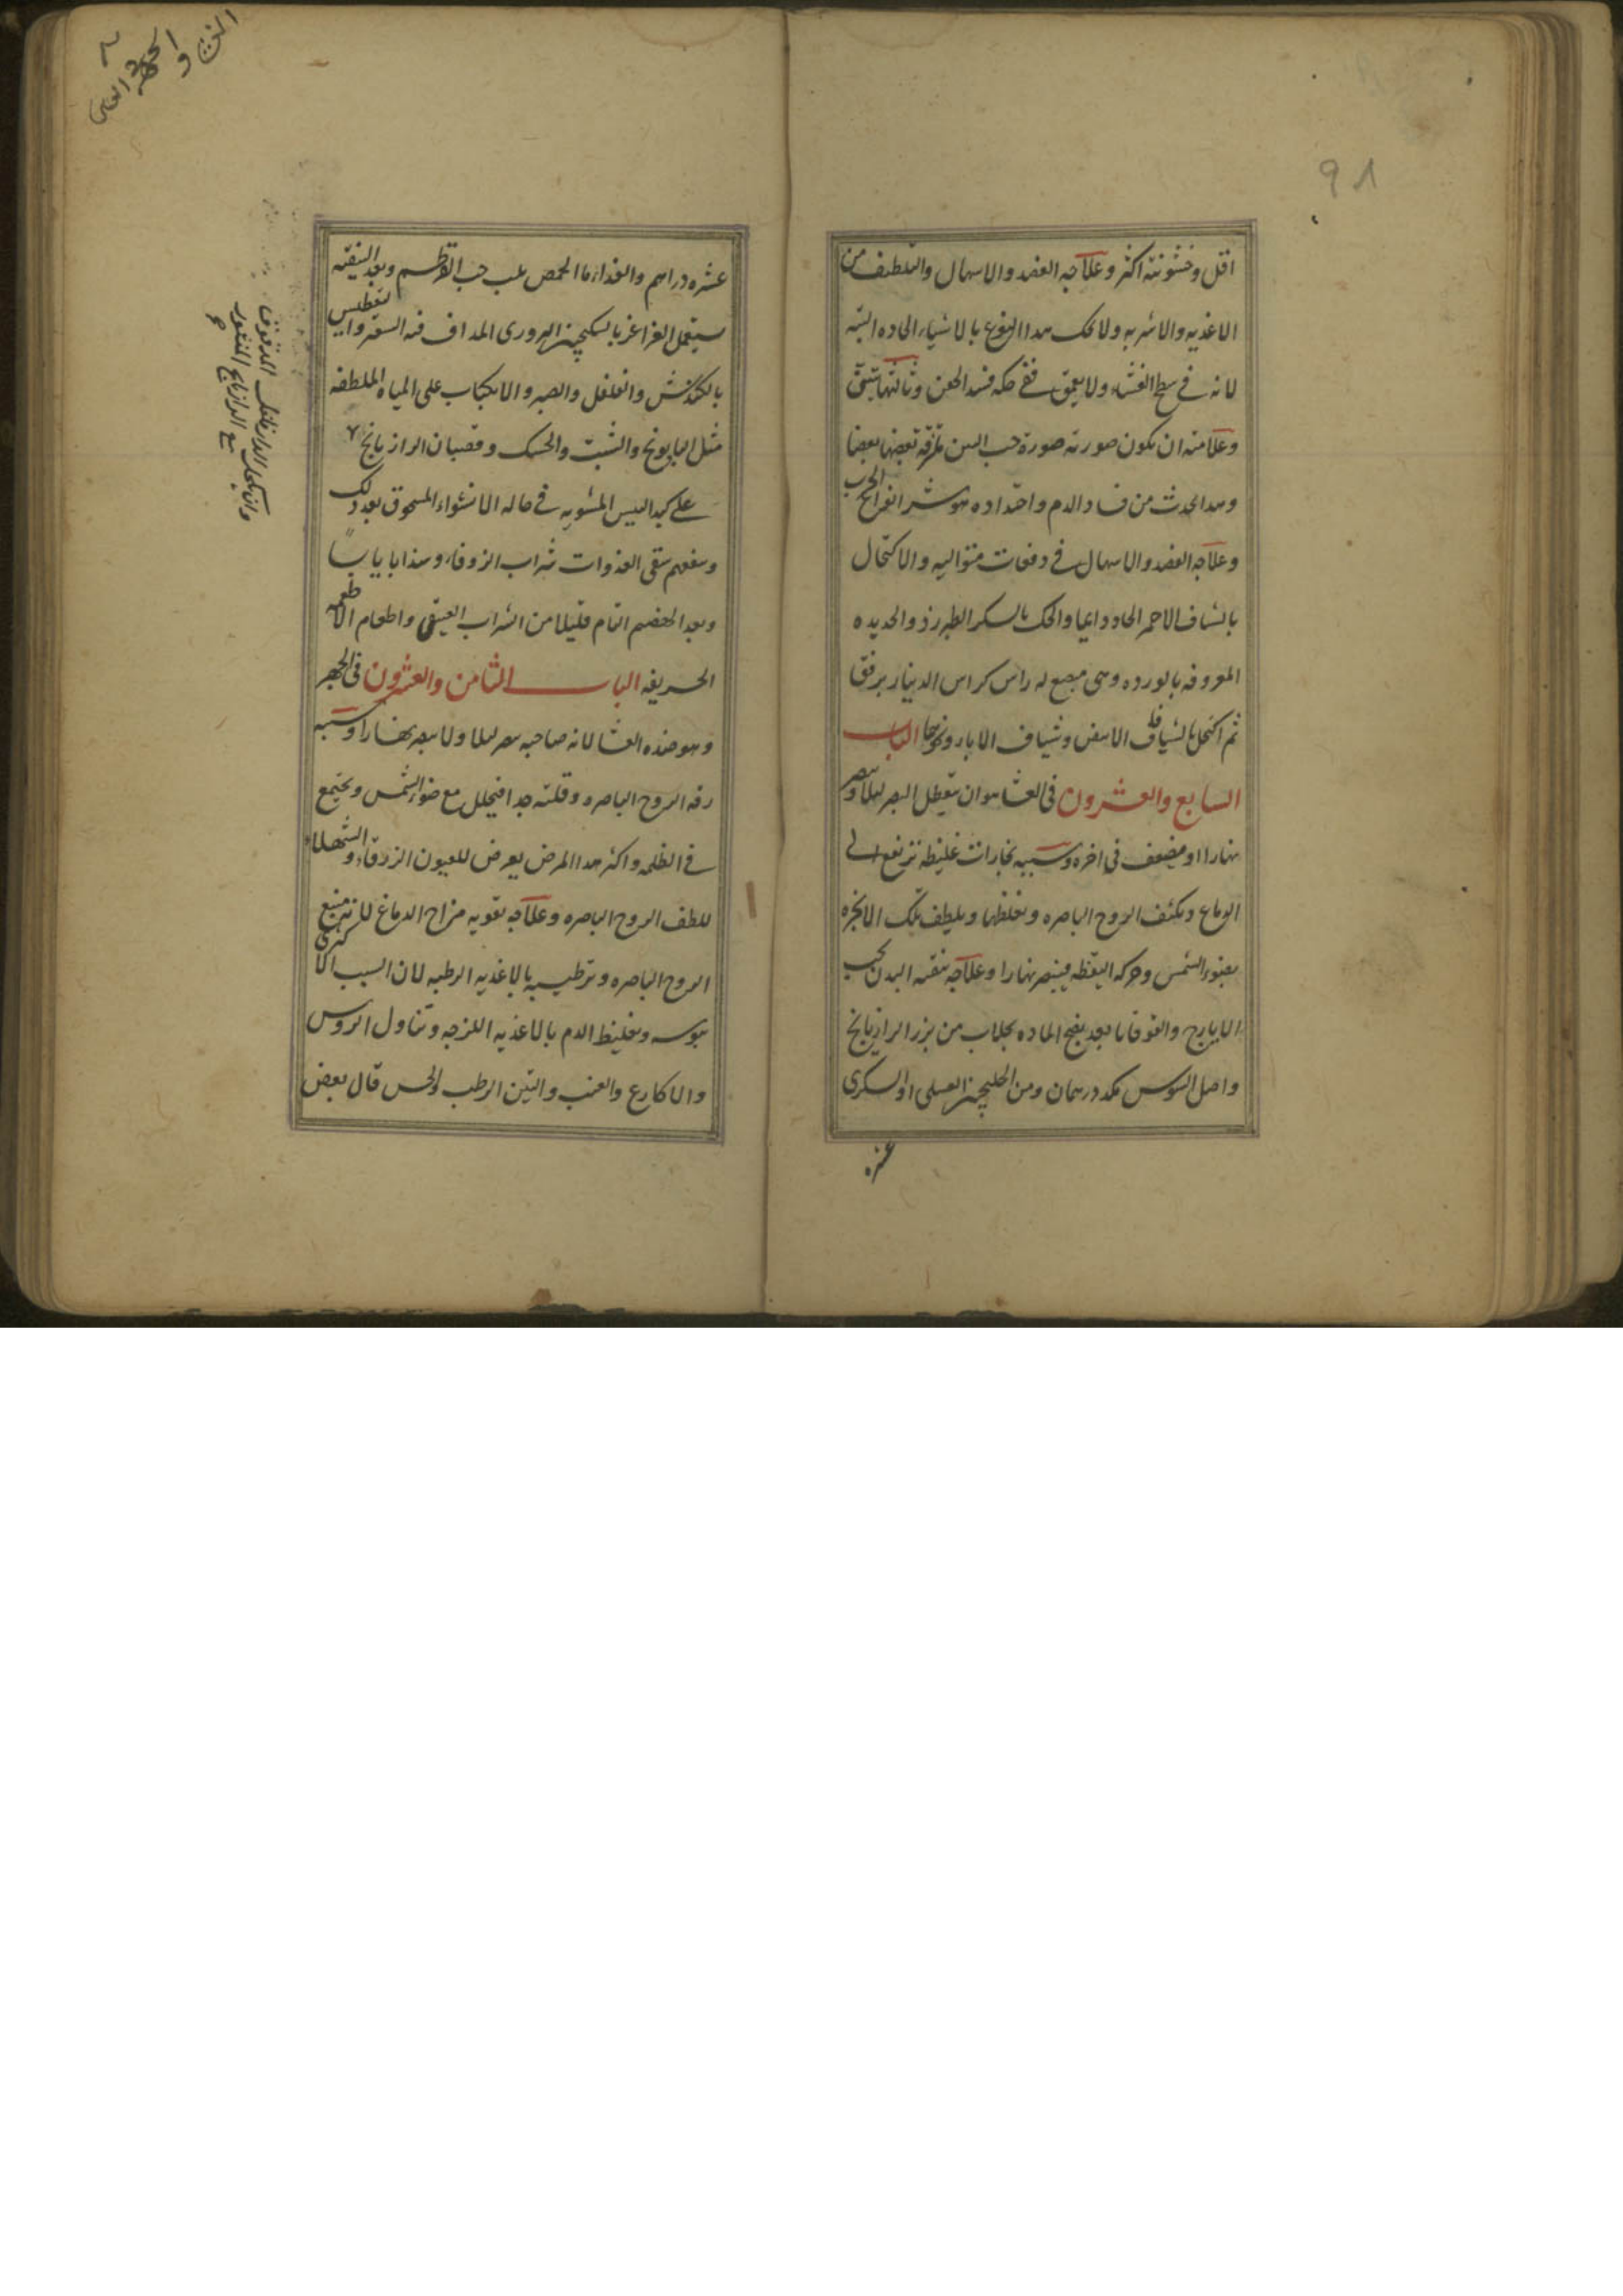 ٩٨
اقل وخشونته اكثر وعلاجه الفصد والاسهال والتلطيف من
الاغذيه والاشربه ولا يحك هذا النوع بالاشياء الحاده البته
لانه فى سطح الغشاء ولا يعمق ففى حكه فسد الجفن وثالثها تينى
وعلامته ان يكون صورته صورة حب التين بعضها بعضا
وهذا يحدث من فساد الدم واحتداده وهو شر انواع الجرب
وعلاجه الفصد والاسهال فى دفعات متواليه والاكتحال
بالشياف الاحمر الحاد دايما والحك بالسكر الطبرزد والحديده
المعروفه بالورده وهى مبضع له راس كراس الدينار برفق
ثم اكتحل بالشياف الابيض وشياف الابار ونحوها الباب
السابع والعشرون فى العشا هو ان يتعطل البصر ليلا ويبصر
نهارا او يضعف فى اخره وسببه بخارات غليظه ترتفع الى
الدماغ ويكثف الروح الباصره ويغلظها ويلطف تلك الابخره
بضوء الشمس وحركه اليقظه فيبصر نهارا وعلاجه تنقيه البدن بحب
الايارج والقوقايا بعد نضج الماده بجلاب من بزر الرازيانج
واصل السوس مكد درهمان ومن الخلنجبين العسلى او السكرى
عشره
عشره دراهم والغذاء ماء الحمص بلب حب القرطم وبعد التنقيه
يستعمل الغراغر بالسكنجبين البزورى المداف فيه السعتر وايـ تعطيس
بالكندش والفلفل والصبر والانكباب على المياه الملطفه
مثل البابونج والشبت والحسك وقضبان الرازيانج
على كبد التيس المشويه فى حاله الانشواء المسحوق بعد ذلك
وينفعهم سقى الغدوات شراب الزوفا وسذابا يابسا
وبعد الهضم التام قليلا من الشراب العتيق واطعام الاطعمه
الحريفه الباب الثامن والعشرون فى الجهر
وهو ضد العشا لان صاحبه يبصر ليلا ولا يبصر نهارا وسببه
رقه الروح الباصره وقلته جدا فيتحلل مع ضوء الشمس ويجتمع
فى الظلمه واكثر هذا المرض يعرض للعيون الزرقاء والشهلاء
للطف الروح الباصره وعلاجه تقويه مزاج الدماغ لانه منبع
الروح الباصره وترطيبه بالاغذيه الرطبه لان السبب الاكثرى
يبوسه وتغليظ الدم بالاغذيه اللزجه وتناول الروس
والاكارع والعنب والتين الرطب والخس قال بعض